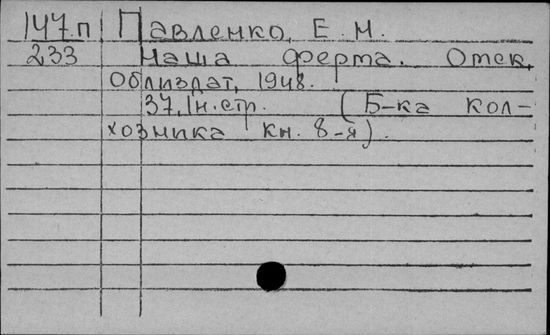 147.п Павленко, Е. М.
233 Наша ферма. Омск,
Облиздат, 1948.
37, 1 н. стр. (Б-ка кол-
хозника кн. 8-я).